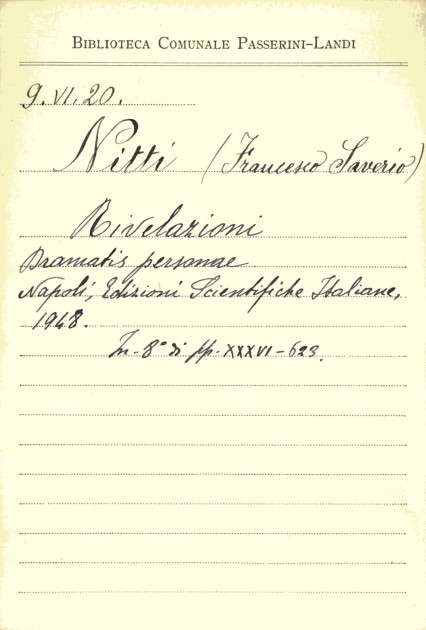 BIBLIOTECA COMUNALE PASSERINI-LANDI
9.VI.20.
Nitti (Francesco Saverio)
Rivelazioni
Dramatis personae
Napoli, Edizioni Scientifiche Italiane,
1948.
In-8° di pp. XXXVI-623.